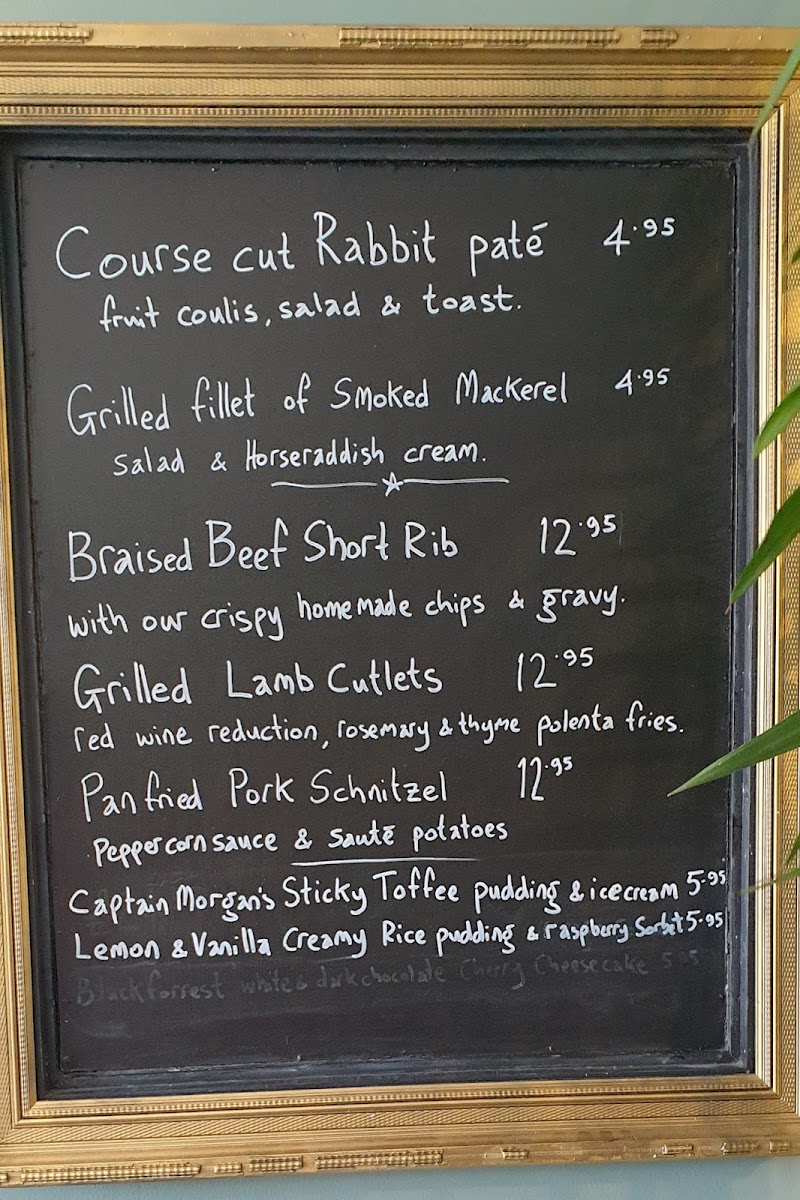 Course cut Rabbit paté 4.95
fruit coulis, salad & toast.
Grilled fillet of Smoked Mackerel 4.95
Salad & Horseraddish cream.
Braised Beef Short Rib 12.95
with our crispy homemade chips & gravy.
Grilled Lamb Cutlets 12.95
red wine reduction, rosemary & thyme polenta fries.
Pan fried Pork Schnitzel 12.95
Peppercorn sauce & sauté potatoes
Captain Morgan's Sticky Toffee pudding & icecream 5.95
Lemon & Vanilla Creamy Rice pudding & raspberry Sorbet 5.95
Blackforrest white & dark chocolate Cherry Cheesecake 5.95